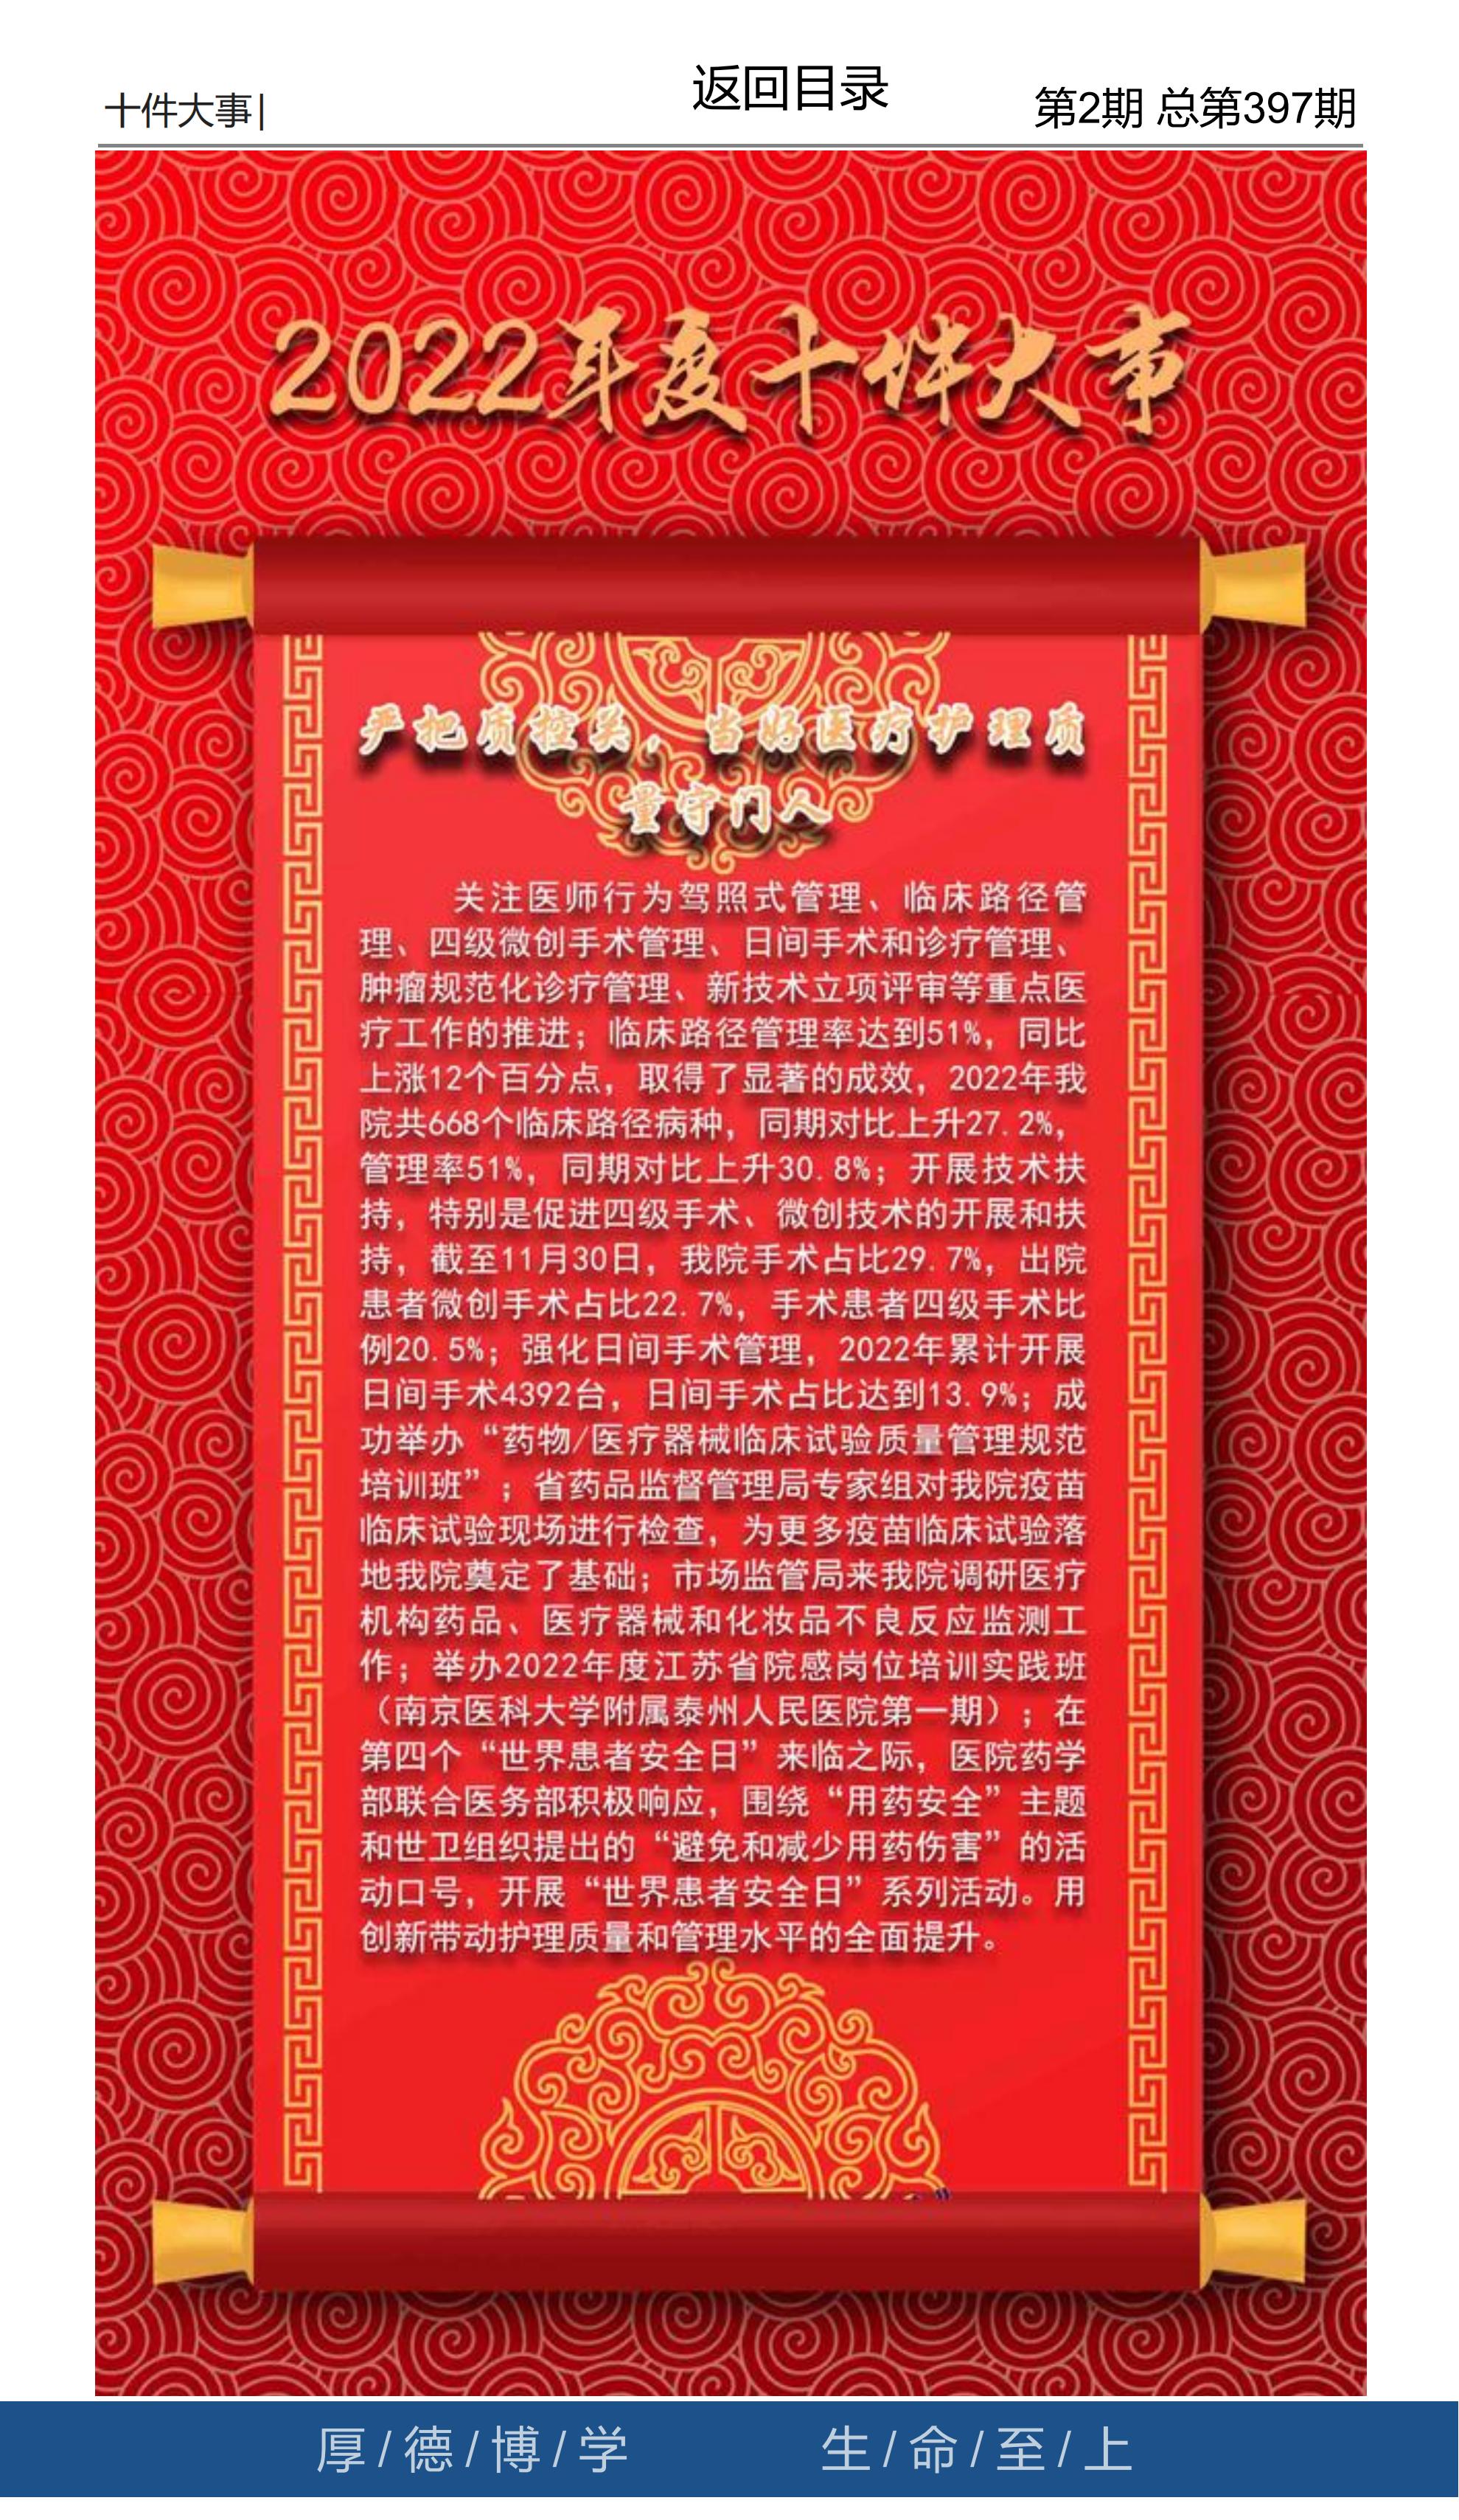 十件大事|
返回目录
第2期 总第397期
2022年度十件大事
严把质控关，当好医疗护理质
量守门人
关注医师行为驾照式管理、临床路径管
理、四级微创手术管理、日间手术和诊疗管理、
肿瘤规范化诊疗管理、新技术立项评审等重点医
疗工作的推进；临床路径管理率达到51%，同比
上涨12个百分点，取得了显著的成效，2022年我
院共668个临床路径病种，同期对比上升27.2%，
管理率51%，同期对比上升30.8%；开展技术扶
持，特别是促进四级手术、微创技术的开展和扶
持，截至11月30日，我院手术占比29.7%，出院
患者微创手术占比22.7%，手术患者四级手术比
例20.5%；强化日间手术管理，2022年累计开展
日间手术4392台，日间手术占比达到13.9%；成
功举办“药物/医疗器械临床试验质量管理规范
培训班”；省药品监督管理局专家组对我院疫苗
临床试验现场进行检查，为更多疫苗临床试验落
地我院奠定了基础；市场监管局来我院调研医疗
机构药品、医疗器械和化妆品不良反应监测工
作；举办2022年度江苏省院感岗位培训实践班
（南京医科大学附属泰州人民医院第一期）；在
第四个“世界患者安全日”来临之际，医院药学
部联合医务部积极响应，围绕“用药安全”主题
和世卫组织提出的“避免和减少用药伤害”的活
动口号，开展“世界患者安全日”系列活动。用
创新带动护理质量和管理水平的全面提升。
厚/德/博/学 生/命/至/上